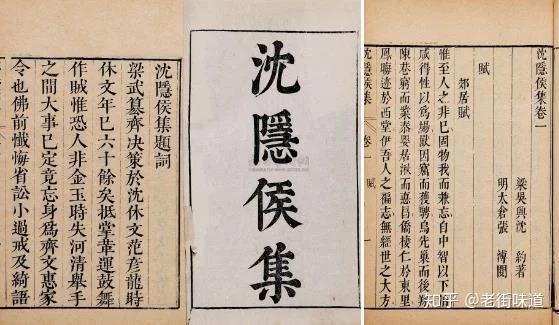 沈隱侯集題詞
梁武篡齊决策於沈休文范彥龍時
休文年巳六十餘矣抵掌革運鼓舞
作賊惟恐人非金玉時失河清舉手
之間大事巳定竟忘身爲齊文惠家
令也佛前懺悔省訟小過戒及綺語
沈隱侯集
沈隱侯集卷一
梁吳興沈 約著
明太倉張 溥閱
賦
郊居賦
惟至人之非巳固物我而兼忘自中智以下
咸得性以爲塲獸因窟而獲騁鳥先巢而後翔
陳巷窮而業泰嬰居湫而德昌僑棲仁於東里
鳳晦迹於西堂伊吾人之褊志無經世之大方
沈隱侯集 卷一 賦
知乎 @老街味道